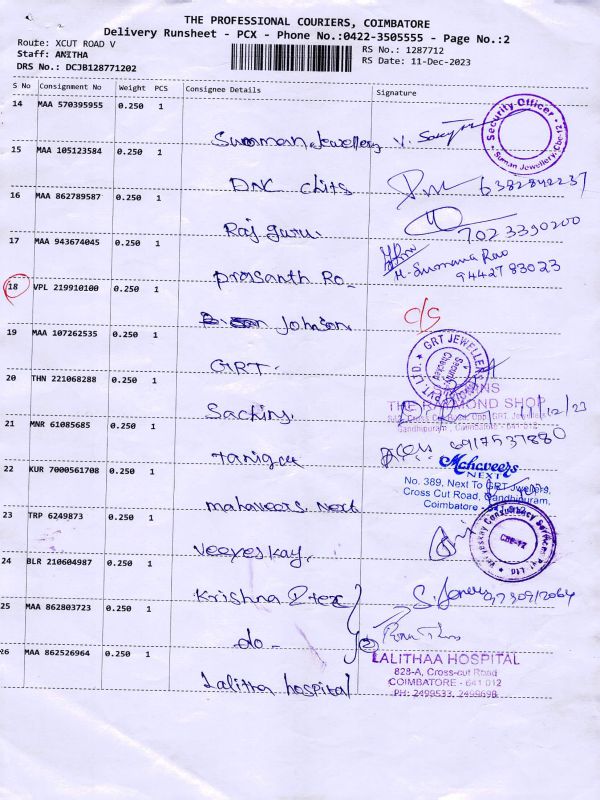 THE PROFESSIONAL COURIERS, COIMBATORE
Delivery Runsheet - PCX - Phone No.:0422-3505555 - Page No.:2
Route: XCUT ROAD V
RS No.: 1287712
Staff: ANITHA
RS Date: 11-Dec-2023
DRS No.: DCJB128771202
S No Consignment No Weight PCS Consignee Details Signature
14 MAA 570395955 0.250 1
Summan Jewellery
Security Officer
Suman Jewellery, Cbe-12
15 MAA 105123584 0.250 1
DNC chits
6382842237
16 MAA 862789587 0.250 1
Raj guru.
7023390200
17 MAA 943674045 0.250 1
Prasanth Ro
M. Sumana Rao
9442783023
18 VPL 219910100 0.250 1
Johnson
c/s
19 MAA 107262535 0.250 1
GRT.
GRT JEWELLERS
PVT. LTD.
Security
Checked
20 THN 221068288 0.250 1
Sachins
THE RAYMOND SHOP
Gandhipuram, Coimbatore - 641 012
11/12/23
21 MNR 61085685 0.250 1
Tanigai
6917537880
22 KUR 7000561708 0.250 1
mahaveers Next
Mahaveers
NEXT
No. 389, Next To GRT Jwellers,
Cross Cut Road, Gandhipuram,
Coimbatore
23 TRP 6249873 0.250 1
Veeyes Kay.
Consultancy Services Pvt. Ltd
CBE-12
24 BLR 210604987 0.250 1
Krishna
25 MAA 862803723 0.250 1
do
2
26 MAA 862526964 0.250 1
Lalitha hospital
LALITHAA HOSPITAL
828-A, Cross-cut Road
COIMBATORE - 641 012
PH: 2499533, 2499698